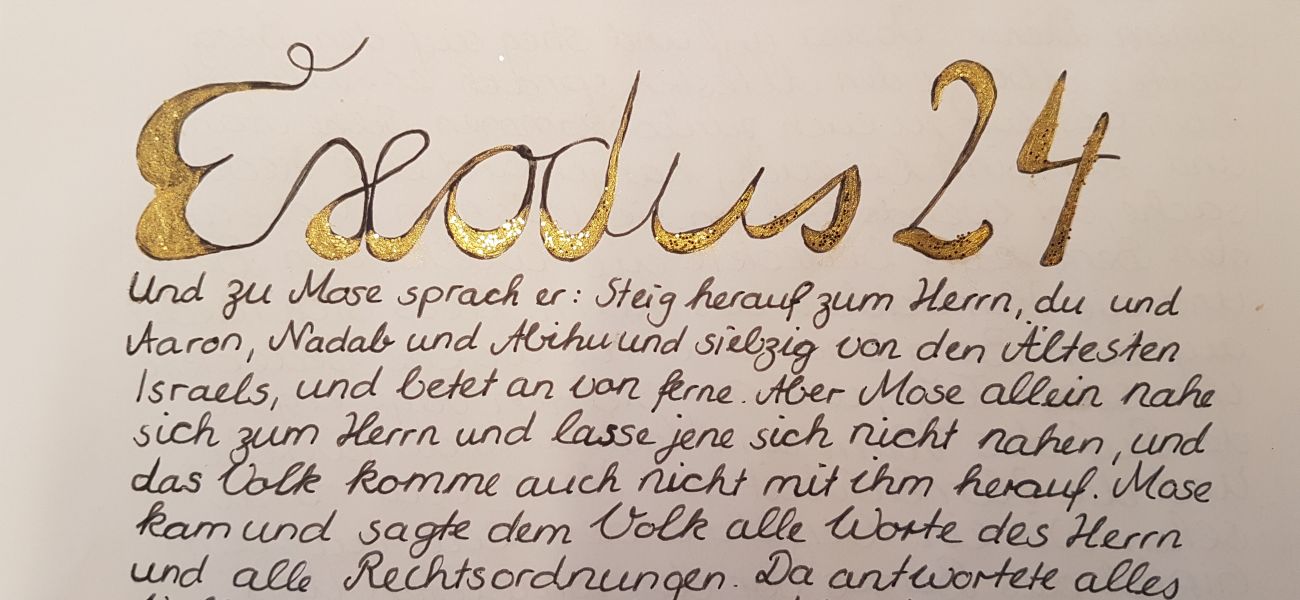 Exodus 24
Und zu Mose sprach er: Steig herauf zum Herrn, du und
Aaron, Nadab und Abihu und siebzig von den Ältesten
Israels, und betet an von ferne. Aber Mose allein nahe
sich zum Herrn und lasse jene sich nicht nahen, und
das Volk komme auch nicht mit ihm herauf. Mose
kam und sagte dem Volk alle Worte des Herrn
und alle Rechtsordnungen. Da antwortete alles